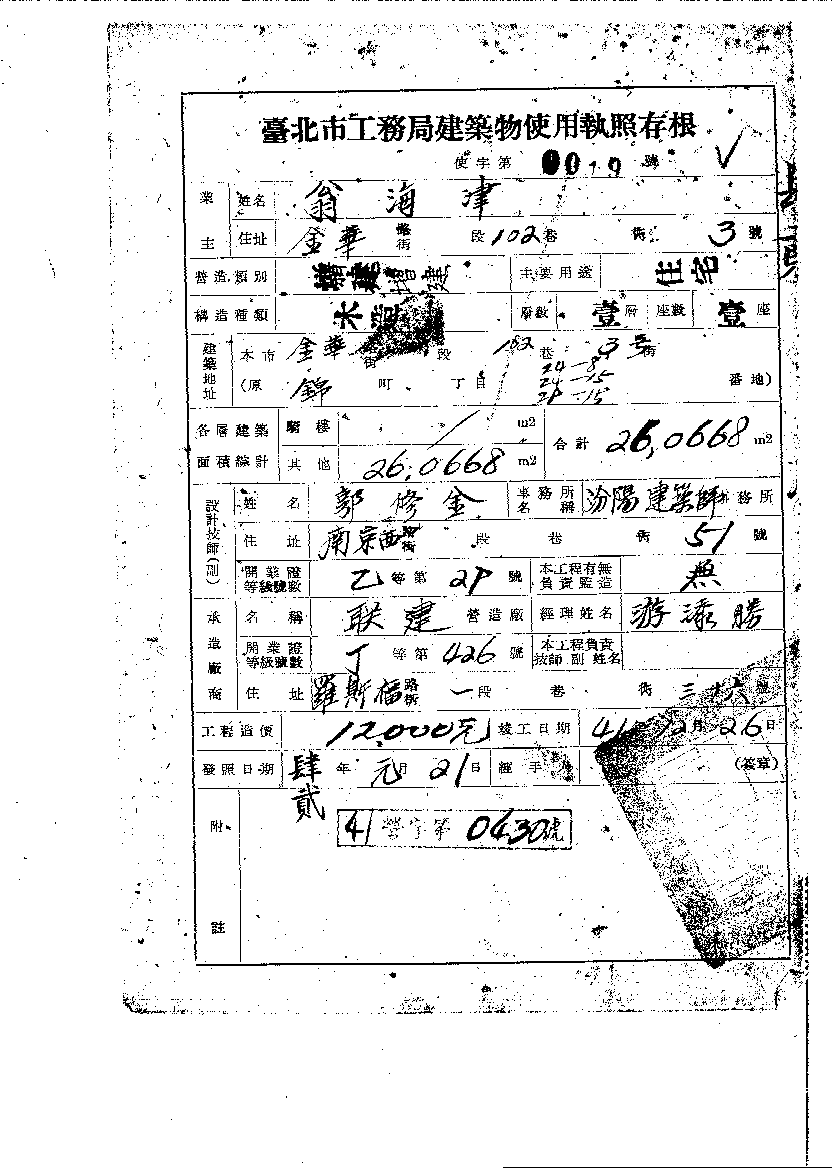 臺北市工務局建築物使用執照存根
使字第 號
業主 姓名 翁海津
住址 金華 路街 段 102 巷 街 3 號
營造類別 增建 主要用途 住宅
構造種類 木造 層數 壹層 座數 壹座
建築地址 本市 金華 街 段 102 巷 3号 街
(原 錦 町 丁目 24-8 24-15 番地)
各層建築面積綜計 騎樓 m2 合計 26.0668 m2
其他 26.0668 m2
設計技師(副) 姓名 郭修金 事務所名稱 汾陽建築師事務所
住址 南京西路街 段 巷 街 51 號
開業證等級號數 乙等第 29 號 本工程有無負責監造 無
承造廠商 名稱 联建 營造廠 經理姓名 游添勝
開業證等級號數 丁等第 426 號 本工程負責技師副姓名
住址 羅斯福 路街 一段 巷 街 三十六號
工程造價 12,000元 竣工日期 41 12月26日
發照日期 肆貳年元月21日 經手人 (簽章)
附註 41營字第0430號